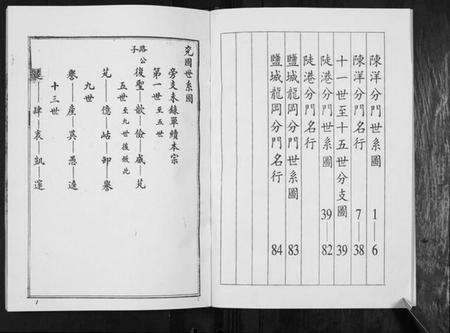 陳洋分門世系圖 1—6
陳洋分門名行 7—38
十一世至十五世分支圖 39
陡港分門世系圖 39—82
陡港分門名行
鹽城龍岡分門世系圖 83
鹽城龍岡分門名行 84
兗國世系圖
旁支未錄單續本宗
第一世至五世
路公
子
復聖—歆—儉—威—芃
五世至九世後倣此
芃—億—岵—卸—譽
九世
譽—產—異—愚—逵
十三世
肆—衷—凱—運
1